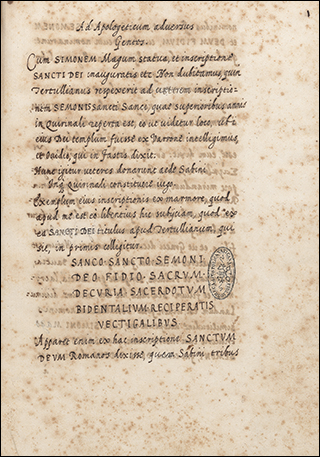 Ad Apologeticum adversus
Gentes.
Cum SIMONEM Magum statua, et inscriptione
SANCTI DEI inauguratis etc. Non dubitamus, quin
Tertullianus respexerit ad veterem inscriptio-
nem SEMONIS Sancti Sanci, quae superioribus annis
in Quirinale reperta est, eo ut videtur loco, ubi
eius Dei templum fuisse ex Varrone intelligimus,
et Ovidio, qui in Fastis dixit.
Hunc igitur veteres donarunt aede Sabini
Inq. Quirinali constituere iugo.
Exemplum eius inscriptionis ex marmore, quod
apud me est eo libentius hic subijciam, quod ex
ea SANCTI DEI titulus apud Tertullianum, qui
sit, in primis colligitur.
SANCO·SANCTO·SEMONI
DEO·FIDIO·SACRVM·
DECVRIA·SACERDOTVM
BIDENTALIVM·RECIPERATIS
VECTIGALIBVS
Apparet enim ex hac inscriptione SANCTUM
DEUM Romanos dixisse, quem Sabini tribus